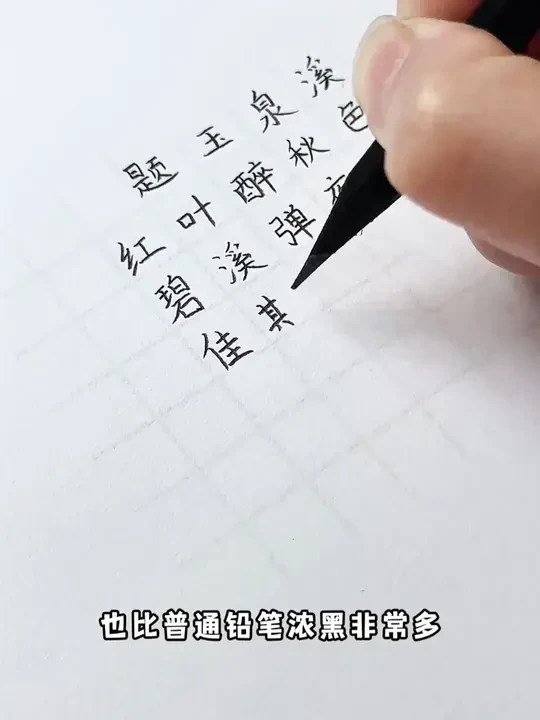 题玉泉溪
红叶醉秋色
碧溪弹
佳其
也比普通铅笔浓黑非常多